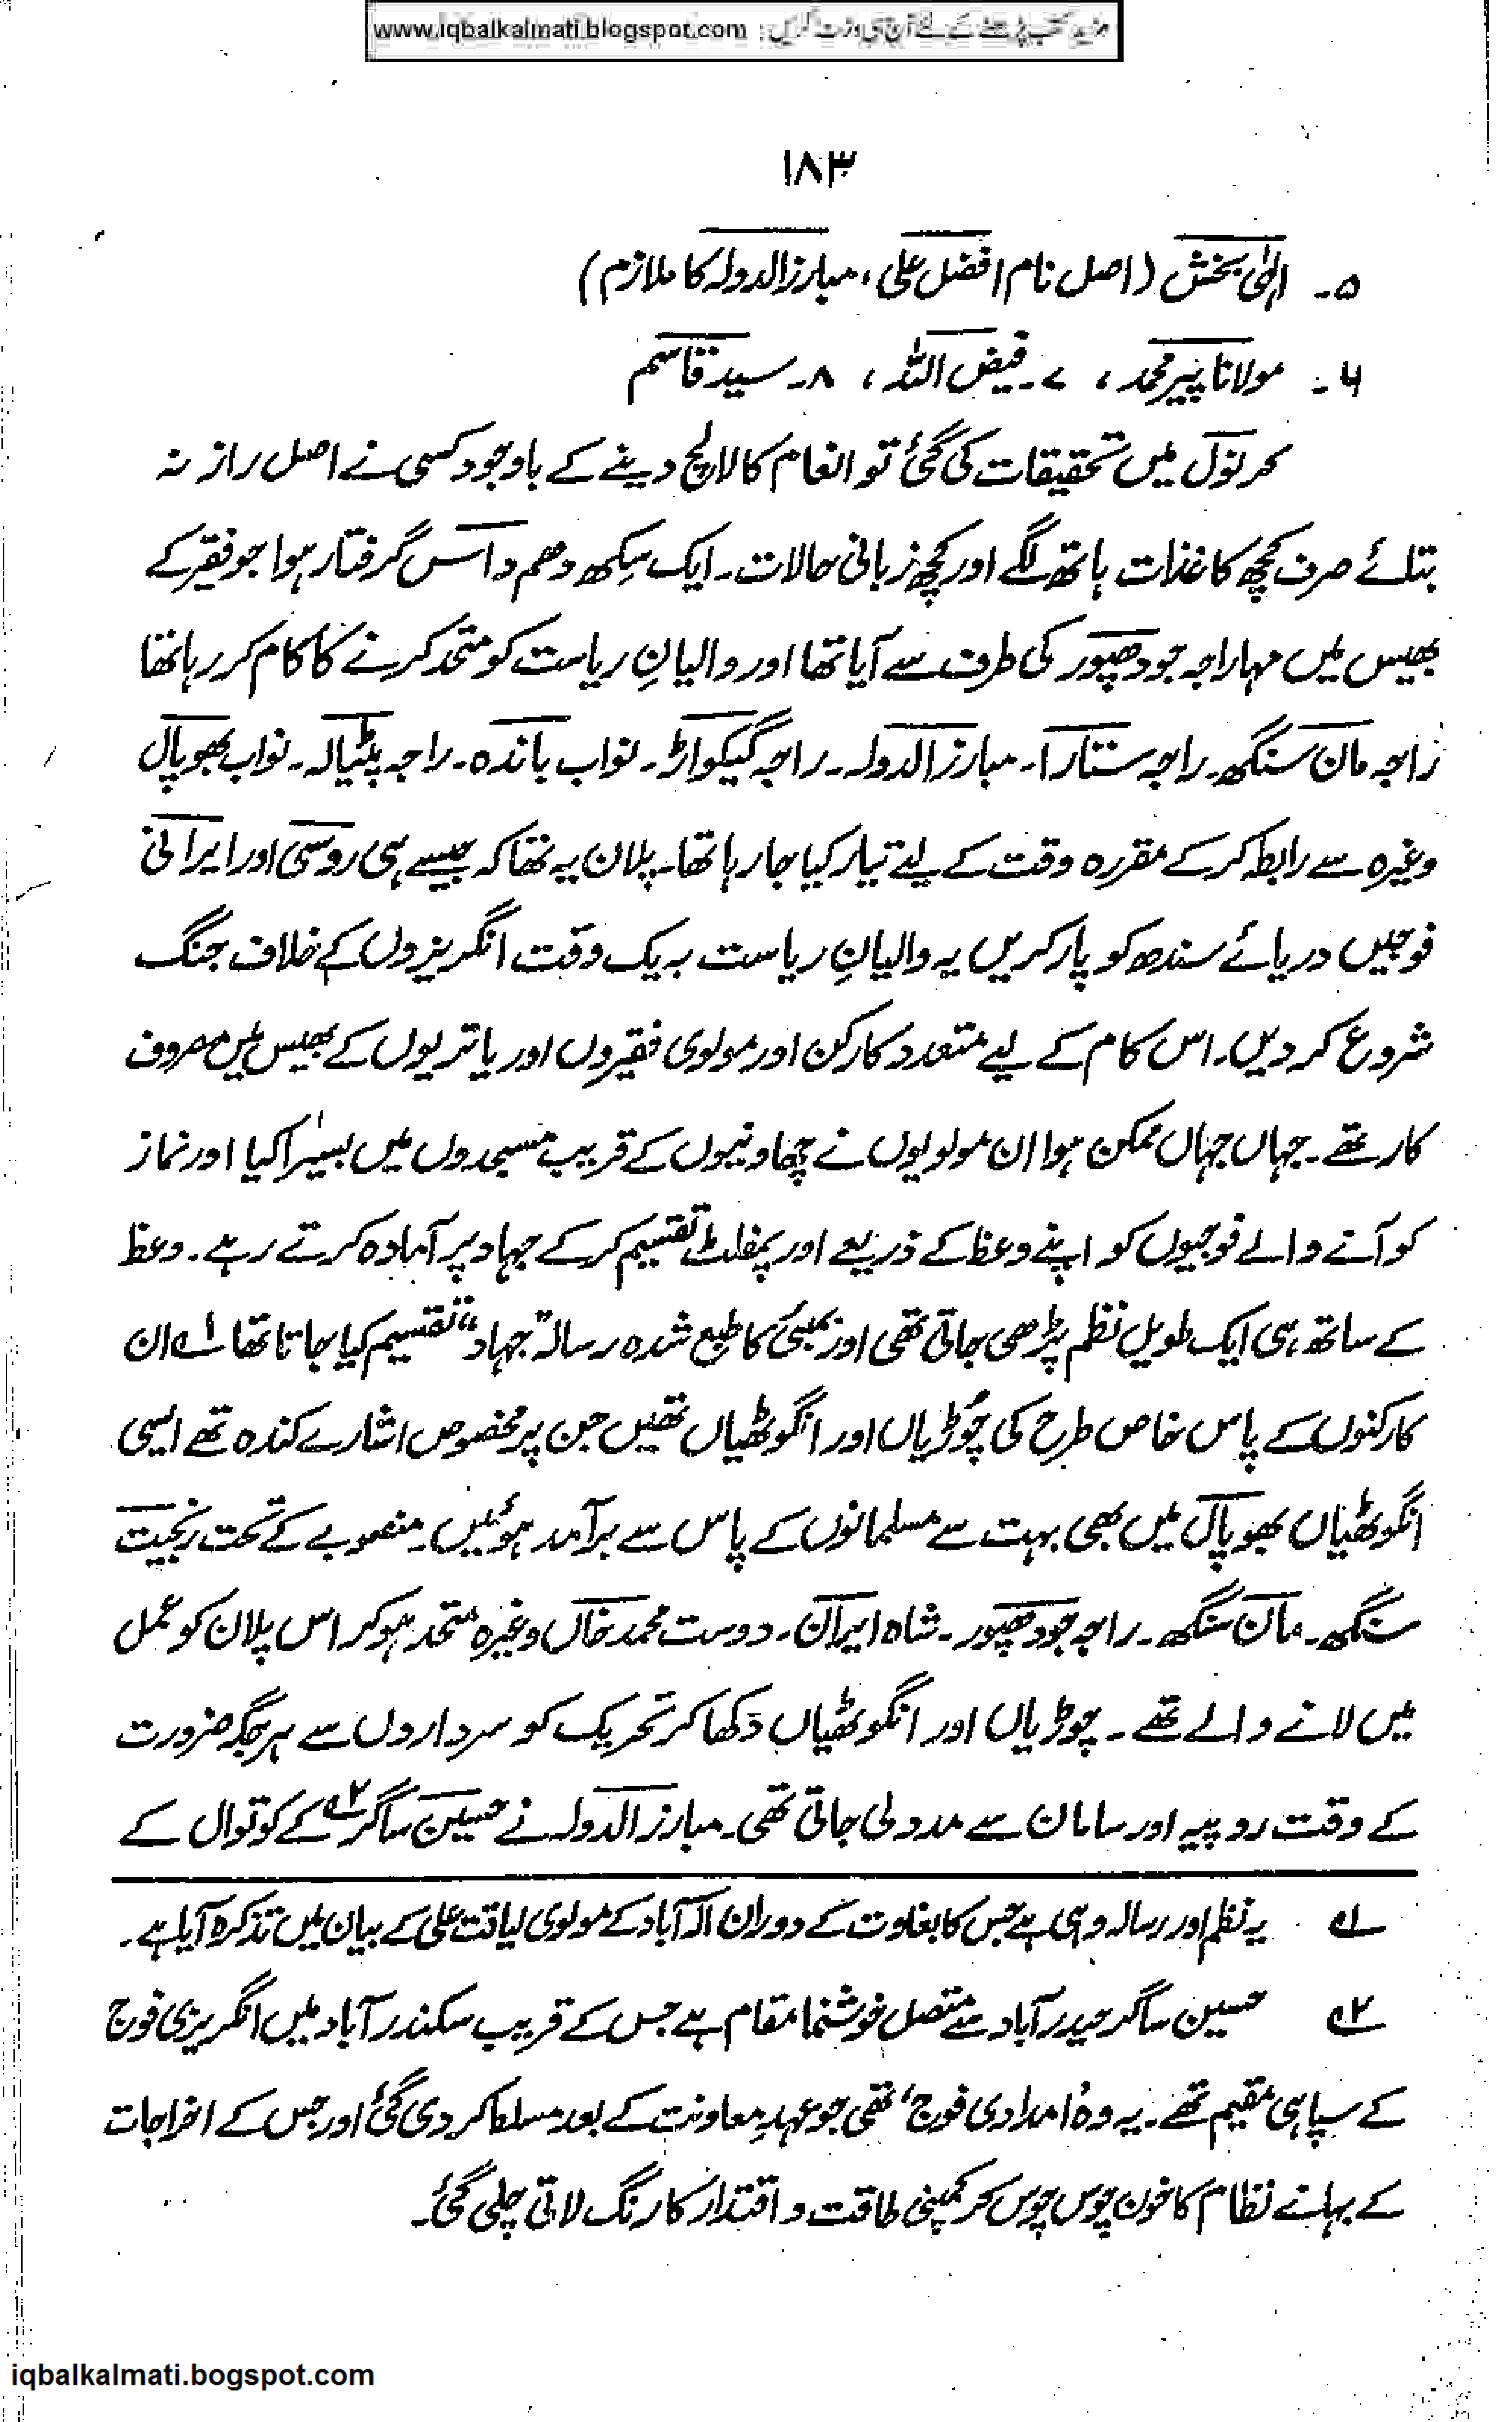 مزید کتب پڑھنے کے لئے آج ہی وزٹ کریں : www.iqbalkalmati.blogspot.com
۱۸۳
۵۔ الٰہی بخش (اصل نام افضل علی، مبارز الدولہ کا ملازم)
۶۔ مولانا پیر محمد، ۷۔ فیض اللہ، ۸۔ سید قاسم
کرنول میں تحقیقات کی گئی تو انعام کا لالچ دینے کے باوجود کسی نے اصل راز نہ
بتلائے صرف کچھ کاغذات ہاتھ لگے اور کچھ زبانی حالات۔ ایک سِکھ دھم داس گرفتار ہوا جو فقیر کے
بھیس میں مہاراجہ جودھپور کی طرف سے آیا تھا اور والیانِ ریاست کو متحد کرنے کا کام کر رہا تھا
راجہ مان سنگھ۔ راجہ ستارا۔ مبارز الدولہ۔ راجہ گیکواڑ۔ نواب باندہ۔ راجہ پٹیالہ۔ نواب بھوپال
وغیرہ سے رابطہ کر کے مقررہ وقت کے لیئے تیار کیا جا رہا تھا۔ پلان یہ تھا کہ جیسے ہی روسی اور ایرانی
فوجیں دریائے سندھ کو پار کریں یہ والیانِ ریاست بہ یک وقت انگریزوں کے خلاف جنگ
شروع کر دیں۔ اس کام کے لیے متعدد کارکن اور مولوی فقیروں اور یاتریوں کے بھیس میں مصروف
کار تھے۔ جہاں جہاں ممکن ہوا ان مولویوں نے چھاونیوں کے قریب مسجدوں میں بسیرا کیا اور نماز
کو آنے والے فوجیوں کو اپنے وعظ کے ذریعے اور پمفلٹ تقسیم کر کے جہاد پر آمادہ کرتے رہے۔ وعظ
کے ساتھ ہی ایک طویل نظم پڑھی جاتی تھی اور بمبئی کا طبع شدہ رسالہ "جہاد" تقسیم کیا جاتا تھا ۱؎ ان
کارکنوں کے پاس خاص طرح کی چُوڑیاں اور انگوٹھیاں تھیں جن پر مخصوص اشارے کندہ تھے ایسی
انگوٹھیاں بھوپال میں بھی بہت سے مسلمانوں کے پاس سے برآمد ہوئیں۔ منصوبے کے تحت رنجیت
سنگھ۔ مان سنگھ۔ راجہ جودھپور۔ شاہ ایران۔ دوست محمد خاں وغیرہ متحد ہو کر اس پلان کو عمل
میں لانے والے تھے۔ چوڑیاں اور انگوٹھیاں دکھا کر تحریک کو سرداروں سے ہر جگہ ضرورت
کے وقت روپیہ اور سامان سے مدد لی جاتی تھی۔ مبارز الدولہ نے حسین ساگر ۲؎ کے کوتوال کے
۱؎ یہ نظم اور رسالہ وہی ہے جس کا بغاوت کے دوران الہ آباد کے مولوی لیاقت علی کے بیان میں تذکرہ آیا ہے۔
۲؎ حسین ساگر حیدرآباد سے متصل خوشنما مقام ہے جس کے قریب سکندرآباد میں انگریزی فوج
کے سپاہی مقیم تھے۔ یہ وہ 'امدادی فوج' تھی جو عہدِ معاونت کے بعد مسلط کر دی گئی اور جس کے اخراجات
کے بہانے نظام کا خون چوس چوس کر کمپنی طاقت و اقتدار کا رنگ لاتی چلی گئی۔
iqbalkalmati.bogspot.com